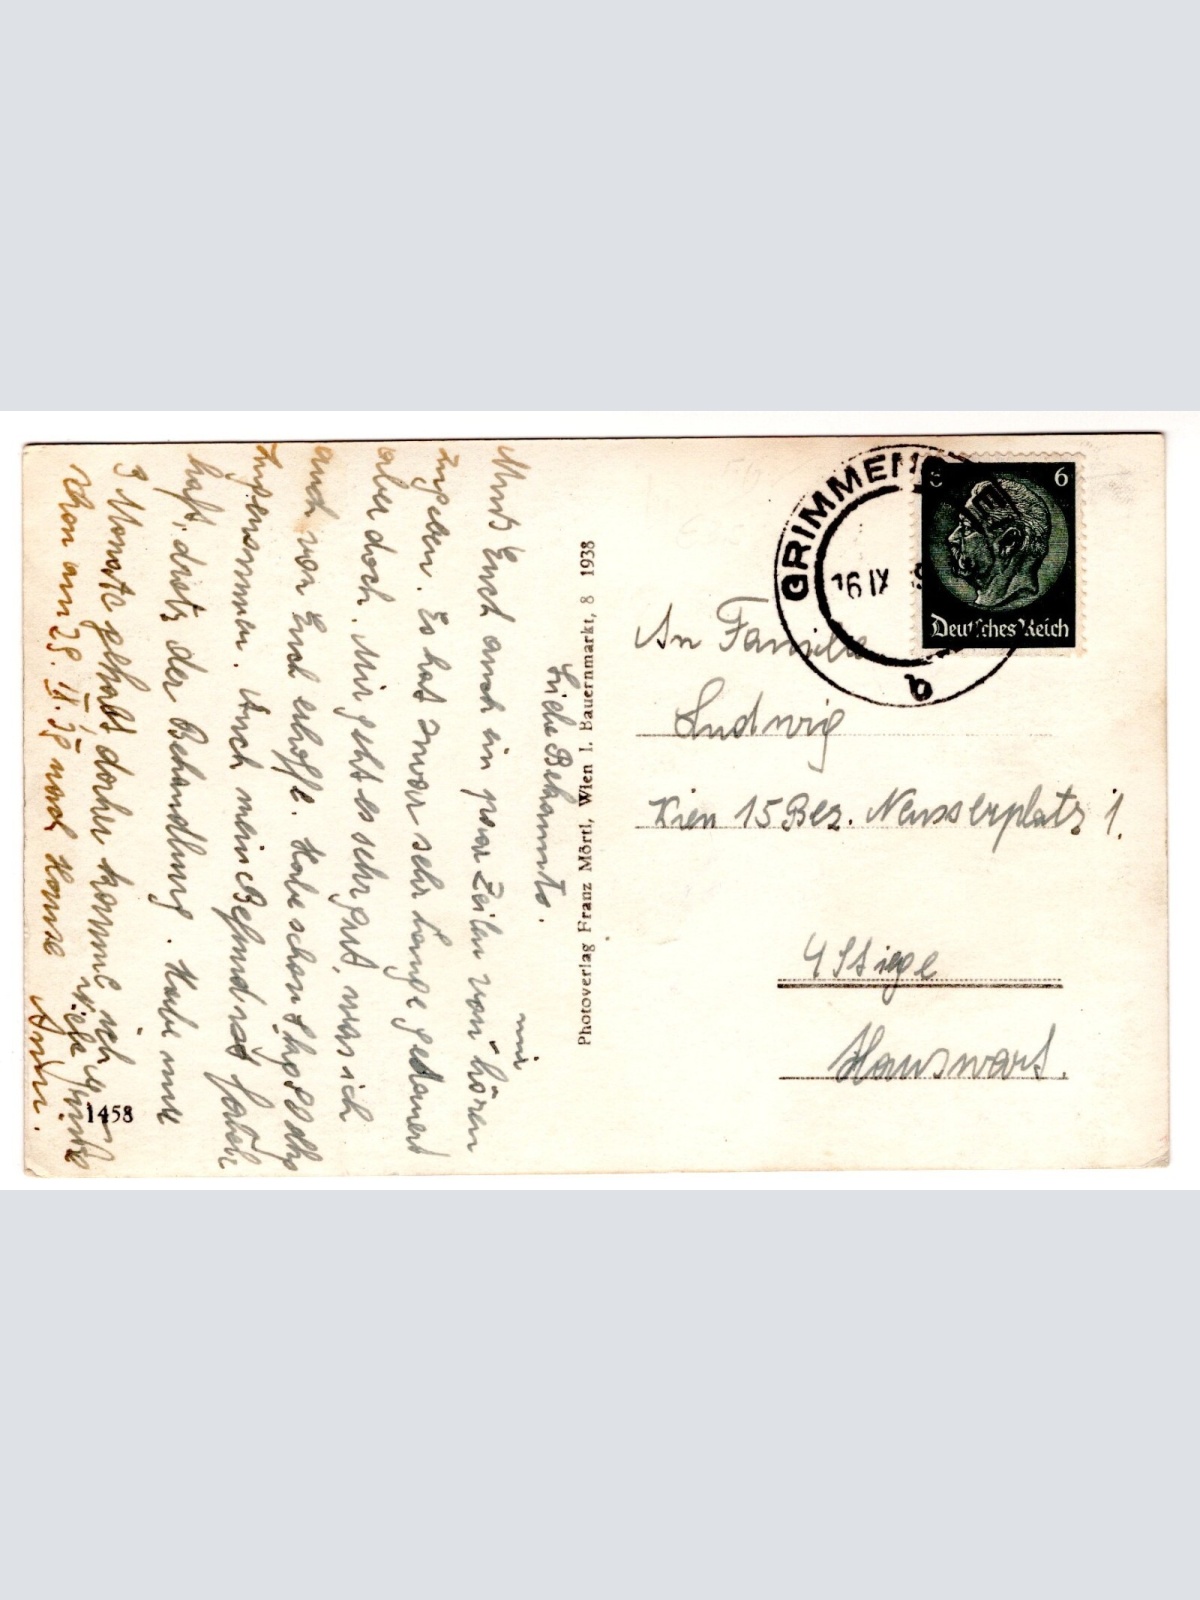 Liebe Bekannte.
Muß Euch auch ein paar Zeilen von mir hören
lassen. Es hat zwar sehr lange gedauert
aber doch. Mir geht es sehr gut, was ich
auch von Euch erhoffe. Habe schon 4 kg 80 dkg
zugenommen. Auch mein Befund ist fabel-
haft, dank der Behandlung. Habe nur
3 Monate gehabt daher komme ich
schon am 29. IX. 38 nach Hause viele Grüße
Anni.
1458
Photoverlag Franz Mörtl, Wien I. Bauernmarkt, 8 1938
GRIMMENS
16 IX
b
6
Deutsches Reich
An Familie
Ludwig
Wien 15 Bez. Neusserplatz 1.
4 Stiege
Hauswart.